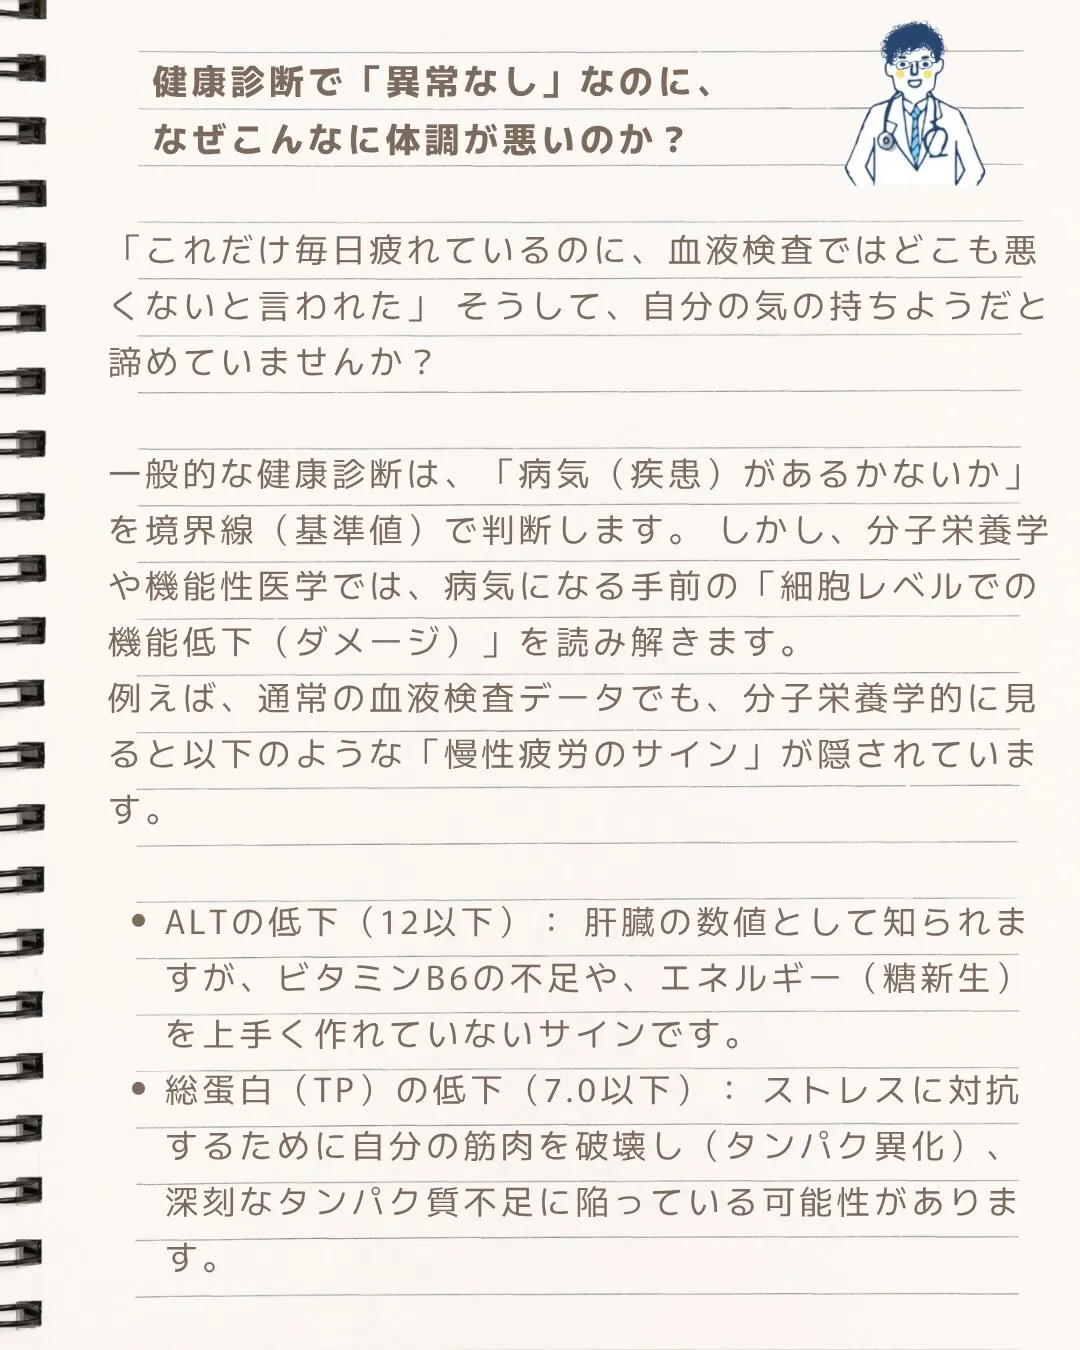 健康診断で「異常なし」なのに、
なぜこんなに体調が悪いのか？
「これだけ毎日疲れているのに、血液検査ではどこも悪
くないと言われた」 そうして、自分の気の持ちようだと
諦めていませんか？
一般的な健康診断は、「病気（疾患）があるかないか」
を境界線（基準値）で判断します。 しかし、分子栄養学
や機能性医学では、病気になる手前の「細胞レベルでの
機能低下（ダメージ）」を読み解きます。
例えば、通常の血液検査データでも、分子栄養学的に見
ると以下のような「慢性疲労のサイン」が隠されていま
す。
• ALTの低下（12以下）： 肝臓の数値として知られま
すが、ビタミンB6の不足や、エネルギー（糖新生）
を上手く作れていないサインです。
• 総蛋白（TP）の低下（7.0以下）： ストレスに対抗
するために自分の筋肉を破壊し（タンパク異化）、
深刻なタンパク質不足に陥っている可能性がありま
す。